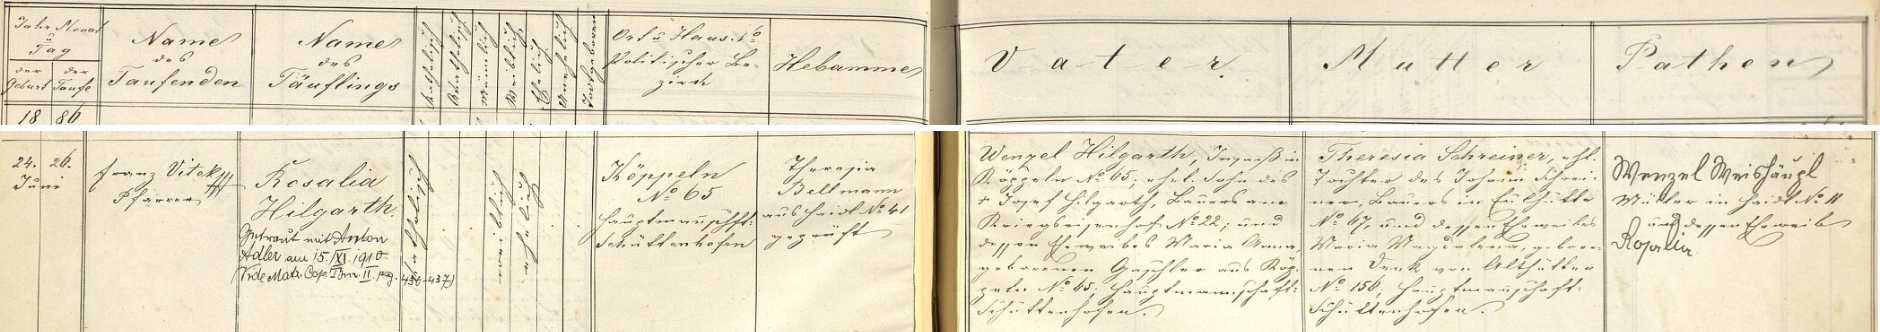 Jahr, Monat
u
Tag
der Geburt
der Taufe
18 86
Name
des
Taufenden
Name
des
Täuflings
Katholisch
Männlich
Weiblich
Ehelich
Unehelich
Todtgeboren
Ort u Haus-No
Politischer Be-
zirk
Hebamme
Vater
Mutter
Pathen
24. 26.
Juni
Franz Vitek
Pfarrer
Rosalia
Hilgarth.
Getraut mit Anton
Adler am 15./XI. 1910
Vide Matr. Cop. Tom. II, pag. 436-437
katholisch
weiblich
ehelich
Köppeln
No 65
Hauptmannschft:
Schüttenhofen
Theresia
Bellmann
aus Haidl No 41
geprüft
Wenzel Hilgarth, Inmaß in
Köppeln No 65; ehel. Sohn des
† Josef Hilgarth, Bauers aus
No 22; und
dessen Eheweibes Maria Anna,
geborenen Gaschler aus Köp-
peln No 65; Hauptmannschaft:
Schüttenhofen.
Theresia Schreiner, ehl.
Tochter des Johann Schrei-
ner, Bauers in
No 67, und dessen Eheweibes
Maria Magdalena, gebore-
nen Denk von Althütten
No 156; Hauptmannschaft:
Schüttenhofen.
Wenzel Weishäupl
Müller in Haidl No 11
und dessen Eheweib
Rosalia